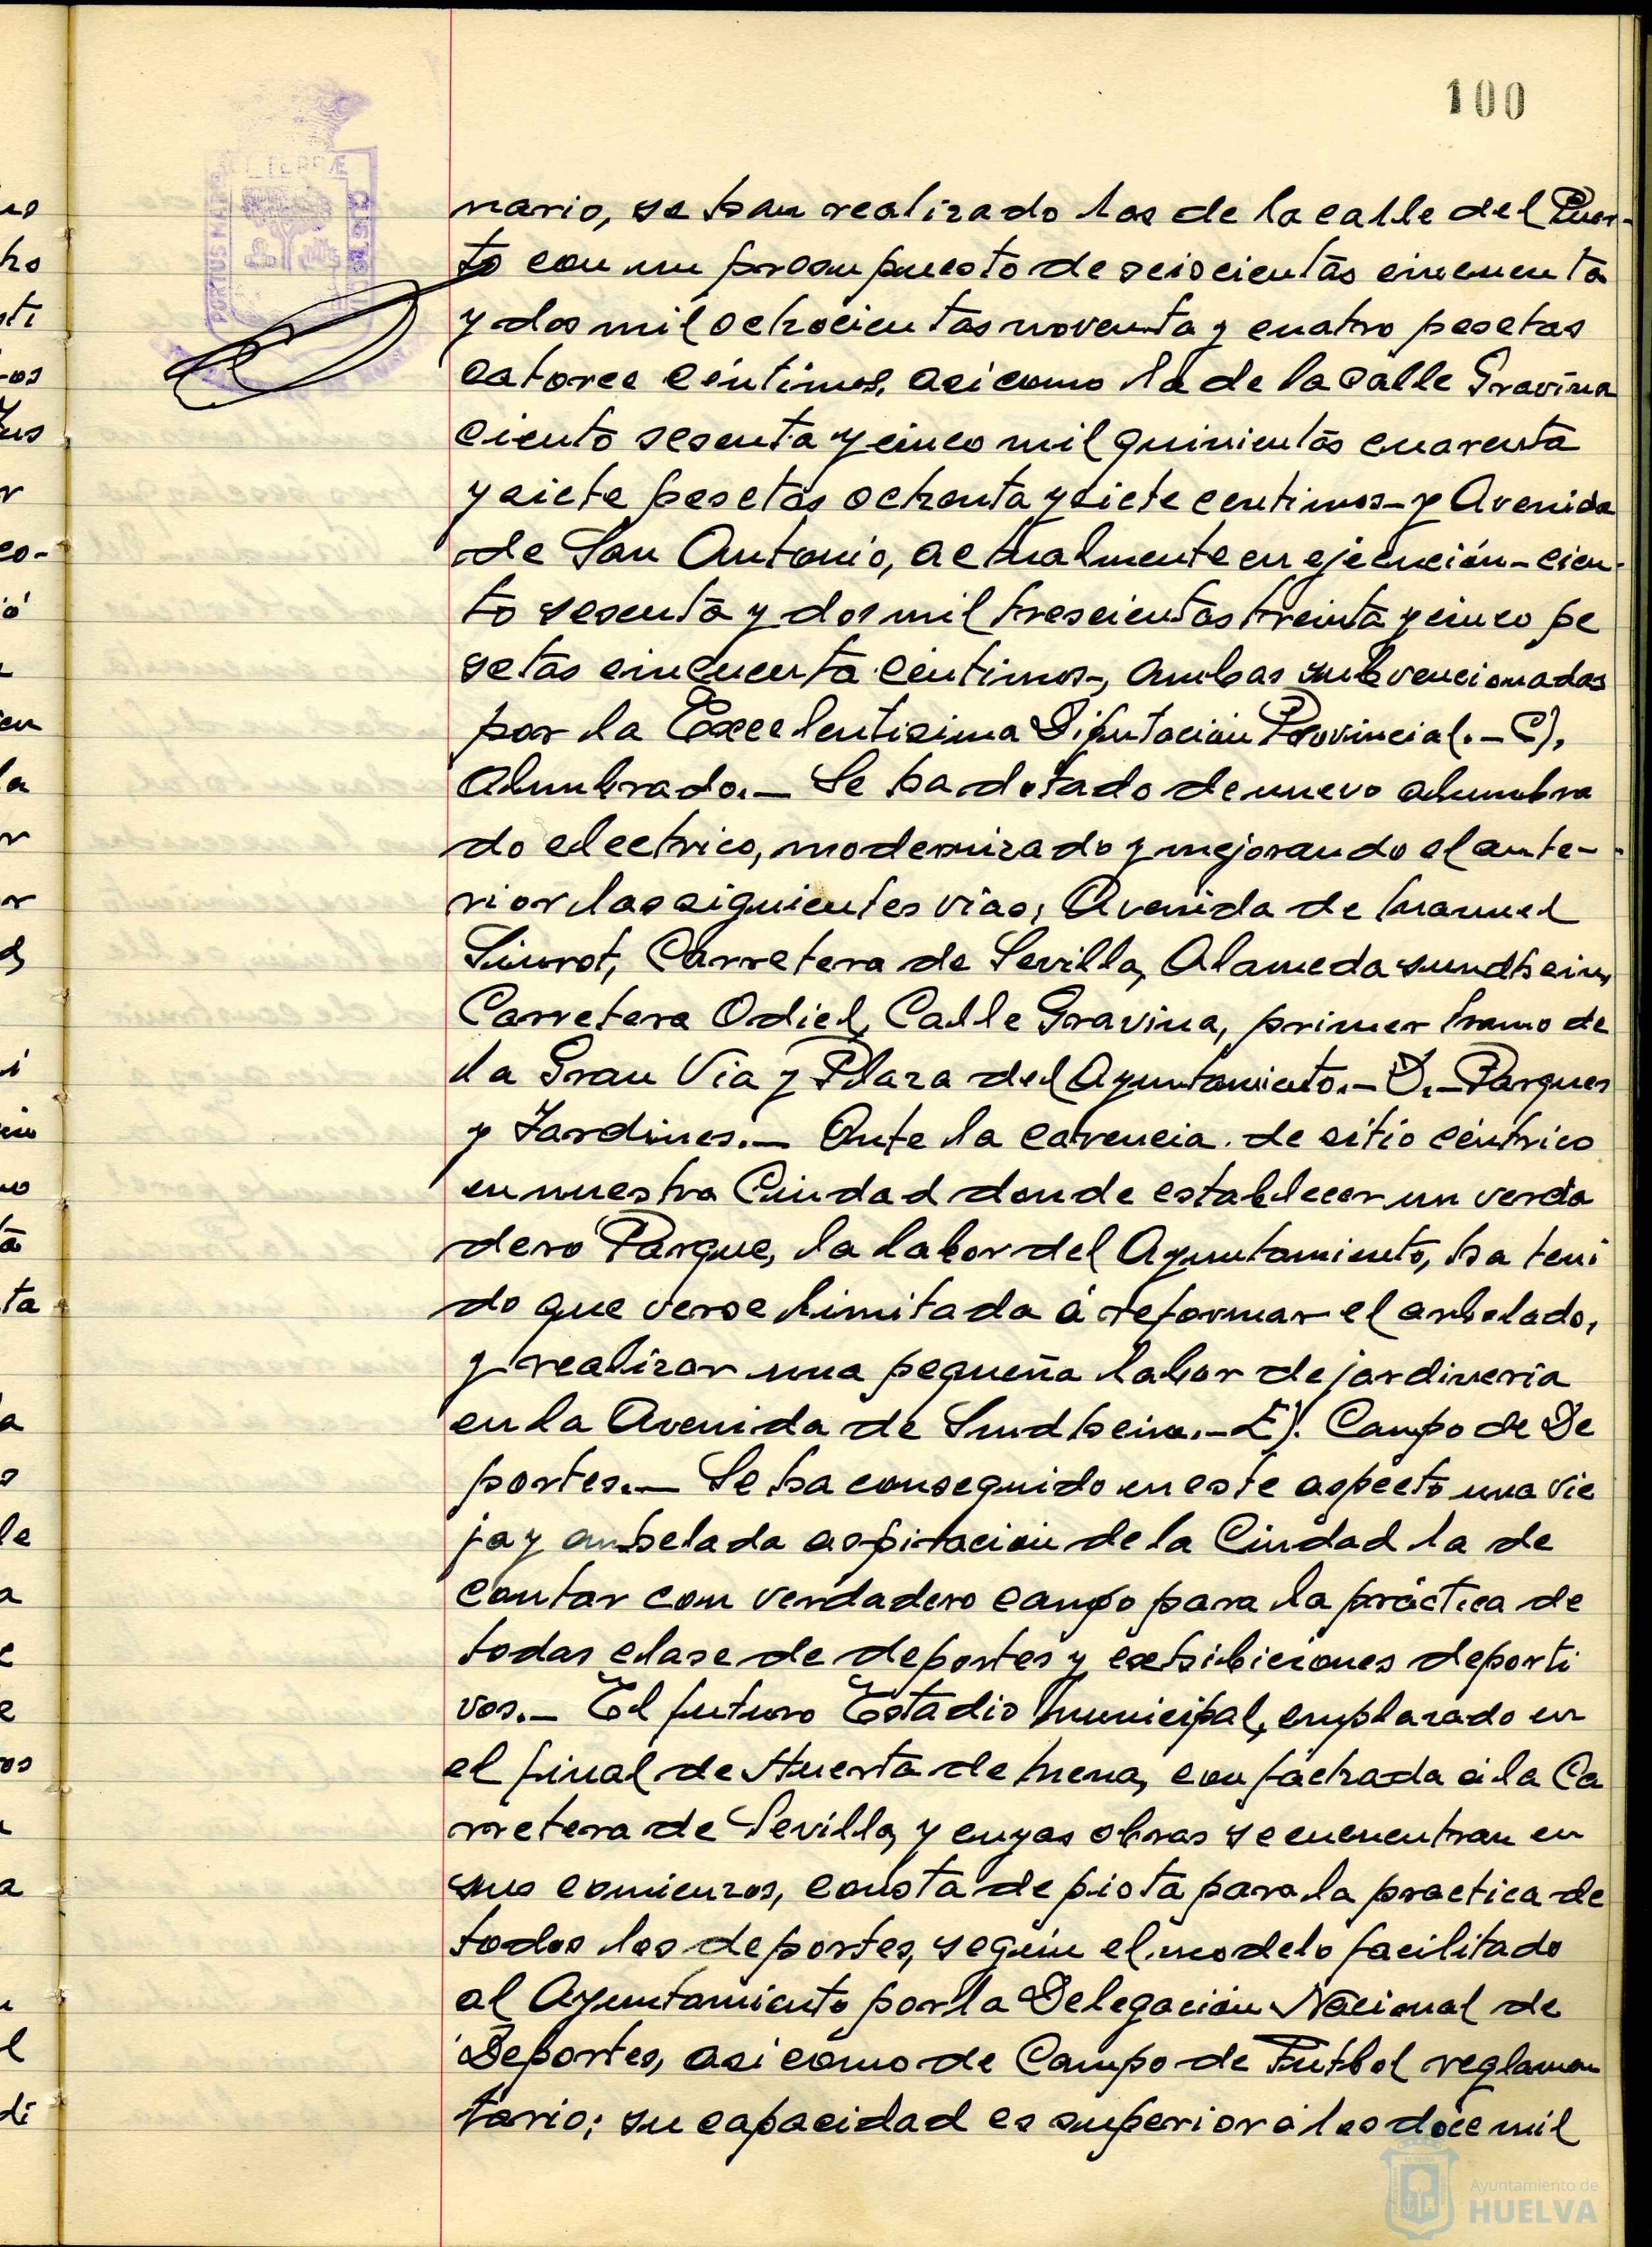 100
nario, se han realizado las de la calle del Puer-
to con un presupuesto de seiscientas cincuenta
y dos mil ochocientas noventa y cuatro pesetas
catorce céntimos, asi como la de la calle Gravina
ciento sesenta y cinco mil quinientas cuarenta
y siete pesetas ochenta y siete centimos- y Avenida
de San Antonio, actualmente en ejecución-cien-
to sesenta y dos mil trescientas treinta y cinco pe
setas cincuenta centimos-, ambas subvencionadas
por la Excelentisima Diputación Provincial.- C),
Alumbrado.- Se ha dotado de nuevo alumbra
do electrico, modernizado y mejorando el ante-
rior las siguientes vias; Avenida de Manuel
Siurot, Carretera de Sevilla, Alameda sundheim,
Carretera Odiel, Calle Gravina, primer tramo de
la Gran Via y Plaza del Ayuntamiento.- D.- Parques
y Jardines.- Ante la carencia de sitio céntrico
en nuestra Ciudad donde establecer un verda
dero Parque, la labor del Ayuntamiento, ha teni
do que verse limitada á reformar el arbolado,
y realizar una pequeña labor de jardineria
en la Avenida de Sundheim.- E). Campo de De
portes.- Se ha conseguido en este aspecto una vie
ja y anhelada aspiración de la Ciudad la de
contar con verdadero campo para la práctica de
todas clase de deportes y exhibiciones deporti
vos.- El futuro Estadio Municipal, emplazado en
el final de Huerta de Mena, con fachada á la Ca
rretera de Sevilla, y cuyas obras se encuentran en
sus comienzos, consta de pista para la practica de
todos los deportes, según el modelo facilitado
al Ayuntamiento por la Delegación Nacional de
Deportes, asi como de Campo de Futbol reglamen
tario; su capacidad es superior á los doce mil
Ayuntamiento de
HUELVA